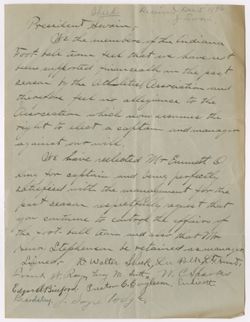 Received Dec 15th
J Swain
President Swain:
We the members of the Indiana
Foot-ball team feel that we have not
been supported financially in the past
season by the Athletic Association and
therefore feel no allegiance to the
Association which now assumes the
right to elect a captain and manager
against our will.
We have selected Mr Emmett O
King our captain and being perfectly
satisfied with the management for the
past season respectfully agree that
you continue to control the affairs of
the Foot-ball team and also that Mr
Stephenson be retained as manager
Signed: D Walter
Frank W. Ray, M. W. C. Sparks
Edgar A Binford, Preston E. Eagleson,